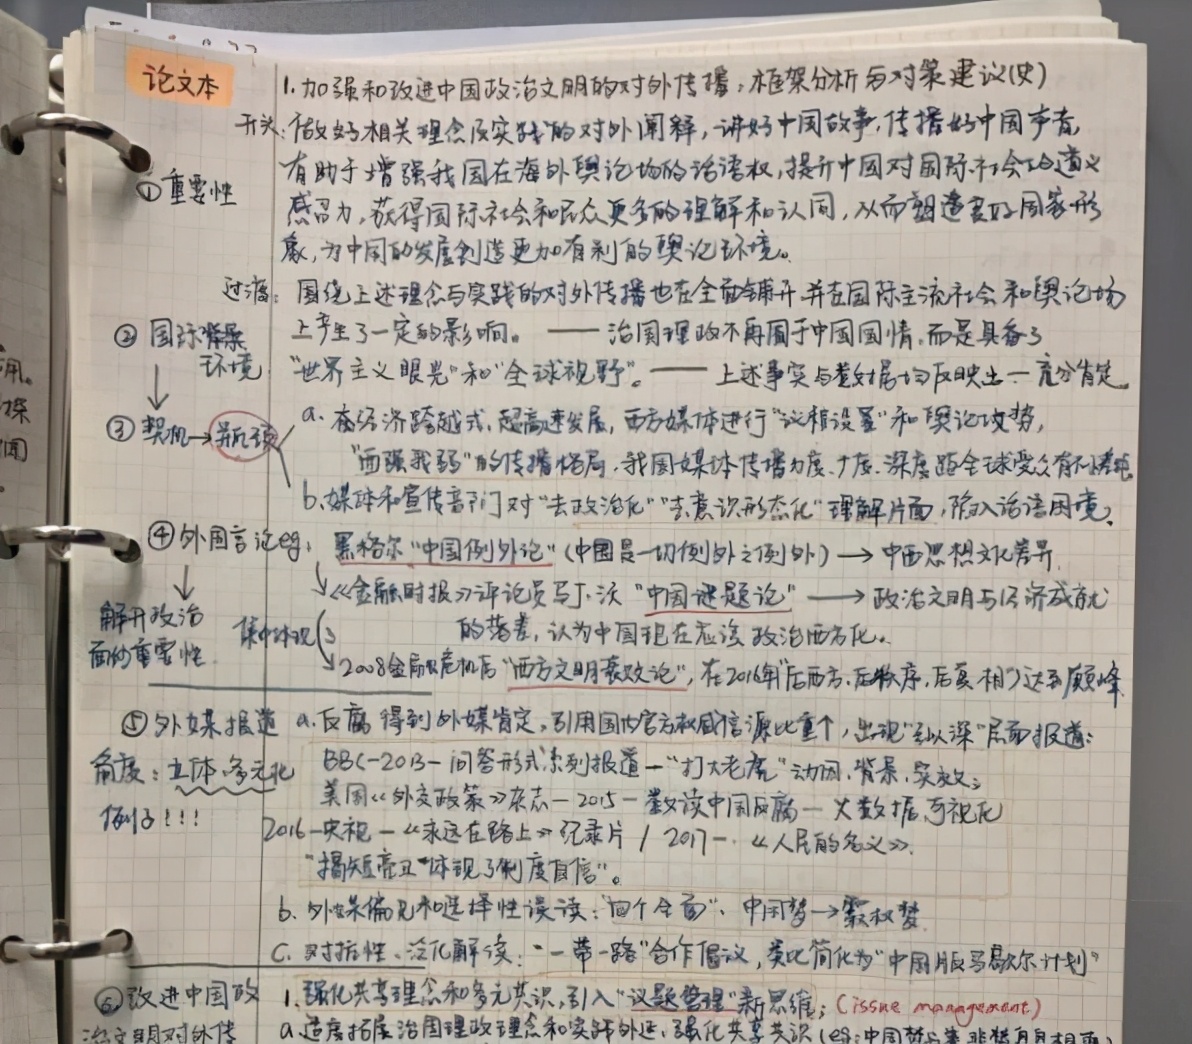 论文本
1.加强和改进中国政治文明的对外传播:框架分析与对策建议(史)
开头:做好相关理念及实践的对外阐释,讲好中国故事,传播好中国声音,
有助于增强我国在海外舆论场的话语权,提升中国对国际社会的道义
①重要性
感召力,获得国际社会和民众更多的理解和认同,从而塑造良好国家形
象,为中国的发展创造更加有利的舆论环境。
过渡:围绕上述理念与实践的对外传播也在全面铺开,并在国际主流社会和舆论场
上产生了一定的影响。——治国理政不再囿于中国国情,而是具备了
②国际背景
环境
"世界主义眼光"和"全球视野"。——上述事实与数据均反映出一 充分肯定
③契机→新瓶颈
a.在经济跨越式、超高速发展,西方媒体进行"议程设置"和舆论攻势,
"西强我弱"的传播格局,我国媒体传播力度、广度、深度距全球受众有不小差距
b.媒体和宣传部门对"去政治化""去意识形态化"理解片面,陷入话语困境。
④外国言论eg:黑格尔"中国例外论"(中国是一切例外之例外)→中西思想文化差异
《金融时报》评论员马丁·沃"中国谜题论"→政治文明与经济成就
解开政治
面纱重要性
集中体现
的落差,认为中国现在应该政治西方化。
2008金融危机后"西方文明衰败论",在2016年("后西方、后秩序、后真相")达到顶峰
⑤外媒报道 a.反腐得到外媒肯定,引用国内官方权威信源比重个,出现"纵深"层面报道:
角度:立体、多元化
BBC-2013-问答形式系列报道-"打大老虎"动因,背景,实效;
美国《外交政策》杂志-2015-数读中国反腐-大数据可视化
例子!!!
2016-央视-《永远在路上》纪录片/2017-《人民的名义》.
"揭短亮丑"体现了制度自信"。
b.外媒偏见和选择性误读:"四个全面"、中国梦→霸权梦
C.对抗性、泛化解读:"一带一路"合作倡议,类比简化为"中国版马歇尔计划"
⑥改进中国政
治文明对外传
1.强化共享理念和多元共识,引入"议题管理"新思维;(issue management)
a.适度拓展治国理政理念和实践外延,强化共享共识(eg:中国梦与